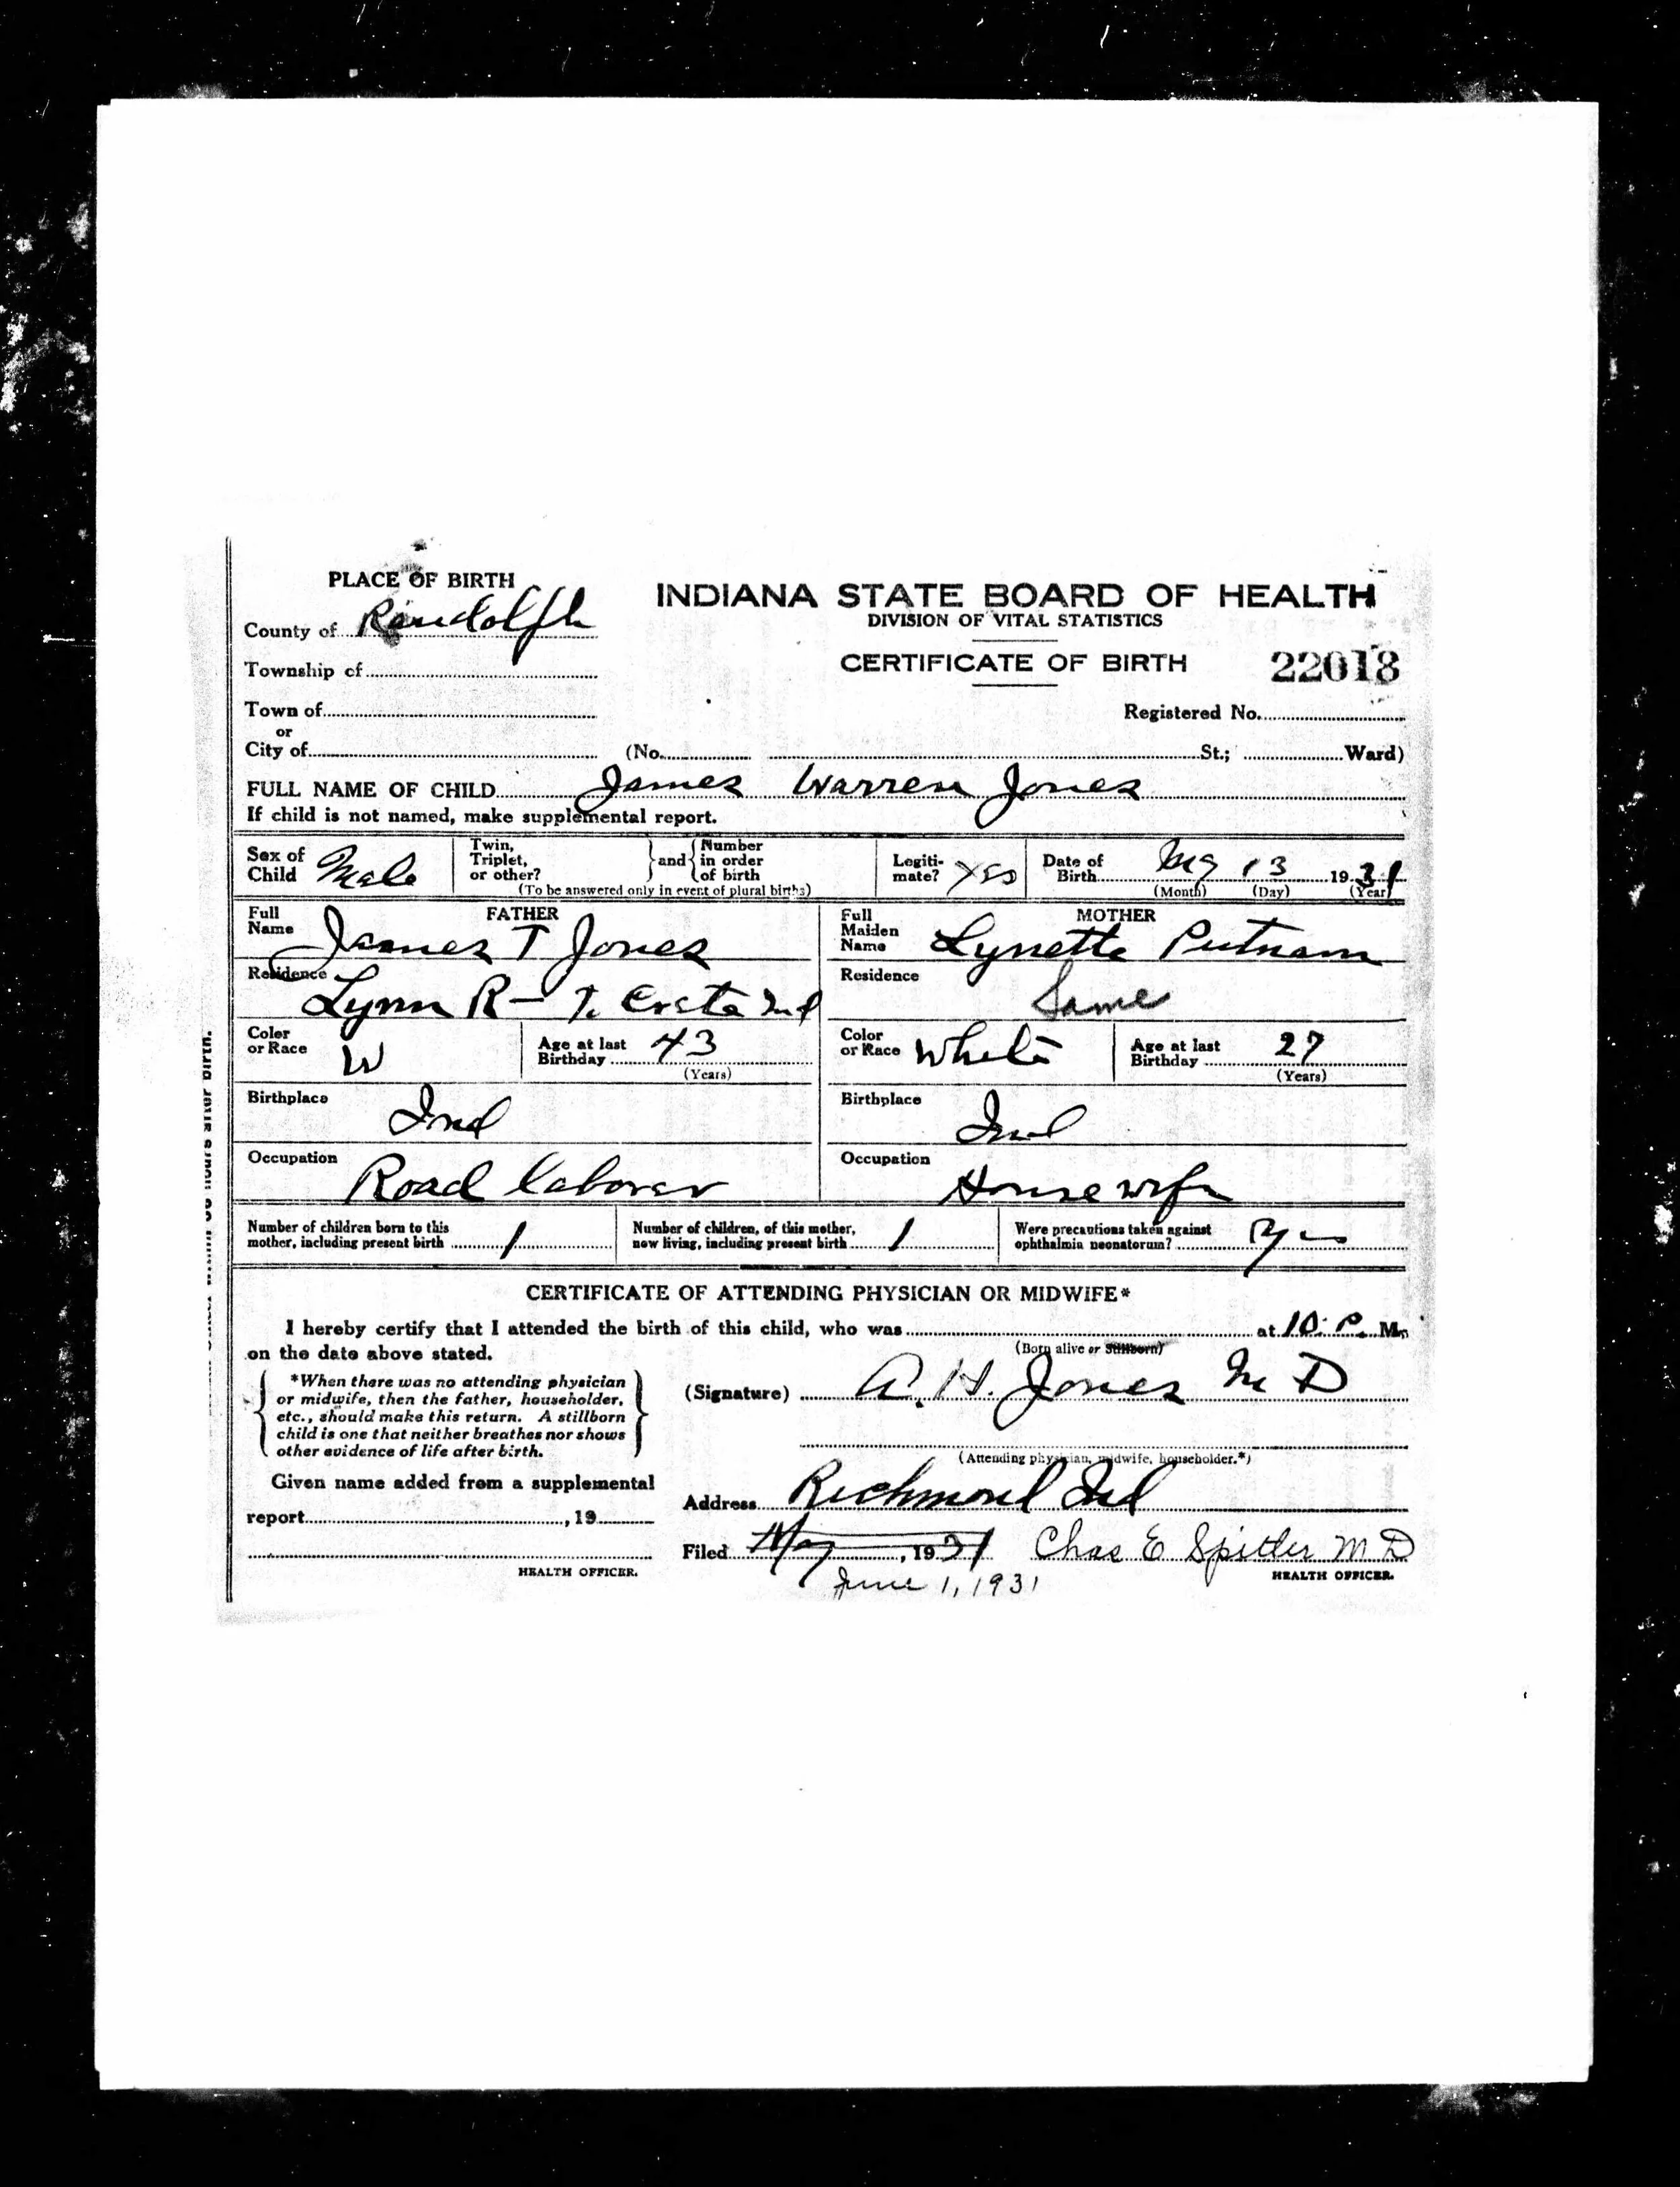 PLACE OF BIRTH
County of Randolph
Township of
Town of
or
City of
INDIANA STATE BOARD OF HEALTH
DIVISION OF VITAL STATISTICS
CERTIFICATE OF BIRTH 22013
Registered No.
(No. St.; Ward)
FULL NAME OF CHILD James Warren Jones
If child is not named, make supplemental report.
Sex of Child Male
Twin, Triplet, or other? and Number in order of birth
(To be answered only in event of plural births)
Legitimate? Yes
Date of Birth May 13 1931
(Month) (Day) (Year)
FATHER
Full Name James T Jones
Residence Lynn R – Ind
Color or Race W
Age at last Birthday 43
(Years)
Birthplace Ind
Occupation Road laborer
MOTHER
Full Maiden Name Lynette Putnam
Residence Same
Color or Race White
Age at last Birthday 27
(Years)
Birthplace Ind
Occupation Housewife
Number of children born to this mother, including present birth 1
Number of children, of this mother, now living, including present birth 1
Were precautions taken against ophthalmia neonatorum? Yes
CERTIFICATE OF ATTENDING PHYSICIAN OR MIDWIFE*
I hereby certify that I attended the birth of this child, who was at 10 P. M.
(Born alive or Stillborn)
on the date above stated.
*When there was no attending physician
or midwife, then the father, householder,
etc., should make this return. A stillborn
child is one that neither breathes nor shows
other evidence of life after birth.
(Signature) A. H. Jones M D
(Attending physician, midwife, householder.*)
Given name added from a supplemental
report , 19
HEALTH OFFICER.
Address Richmond Ind
Filed May , 1931 Chas E Spitler M D
June 1, 1931
HEALTH OFFICER.
hours after birth.